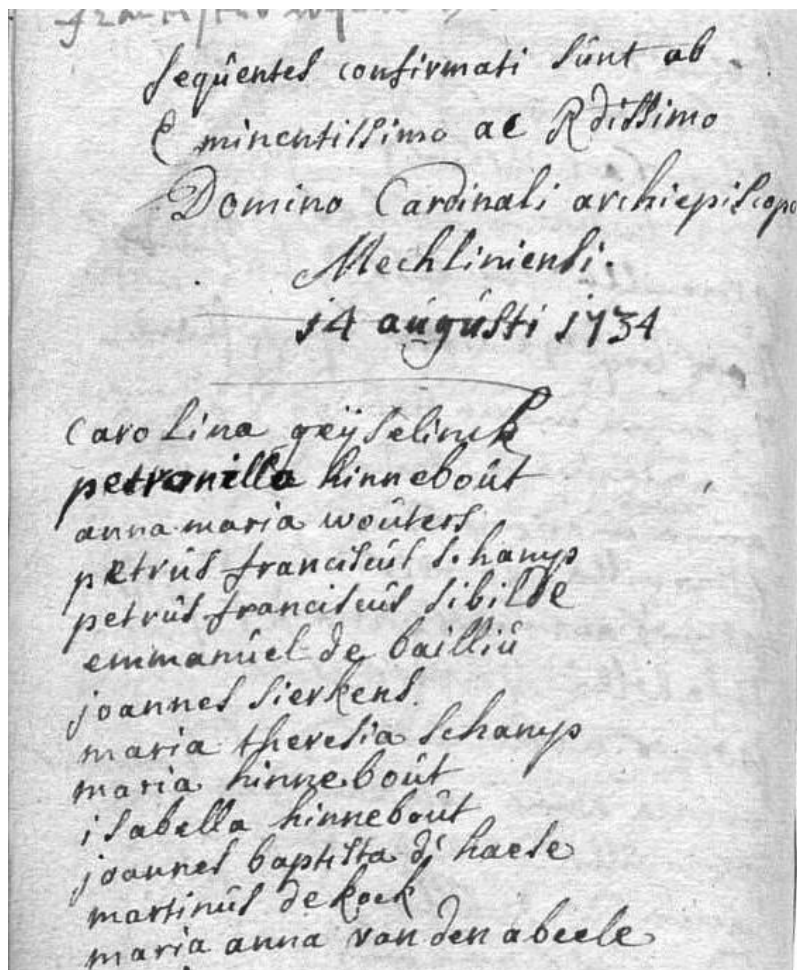 sequentes confirmati sunt ab
Eminentissimo ac Rdissimo
Domino Cardinali archiepiscopo
Mechliniensi.
14 augusti 1734
carolina geÿselinck
petronilla hinnebout
anna maria wouters
petrus franciscus schamp
petrus franciscus sibilde
emmanuel de bailliu
joannes sierkens.
maria theresia schamp
maria hinnebout
isabella hinnebout
joannes baptista d' haese
martinus de kock
maria anna van den abeele